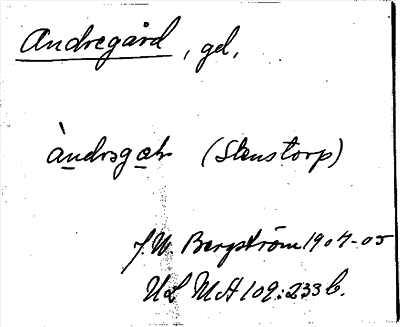 Andregård, gd,
àndrəgaɽ (Stenstorp)
J. W. Bergström 1904-05
ULMA 109:233 b.